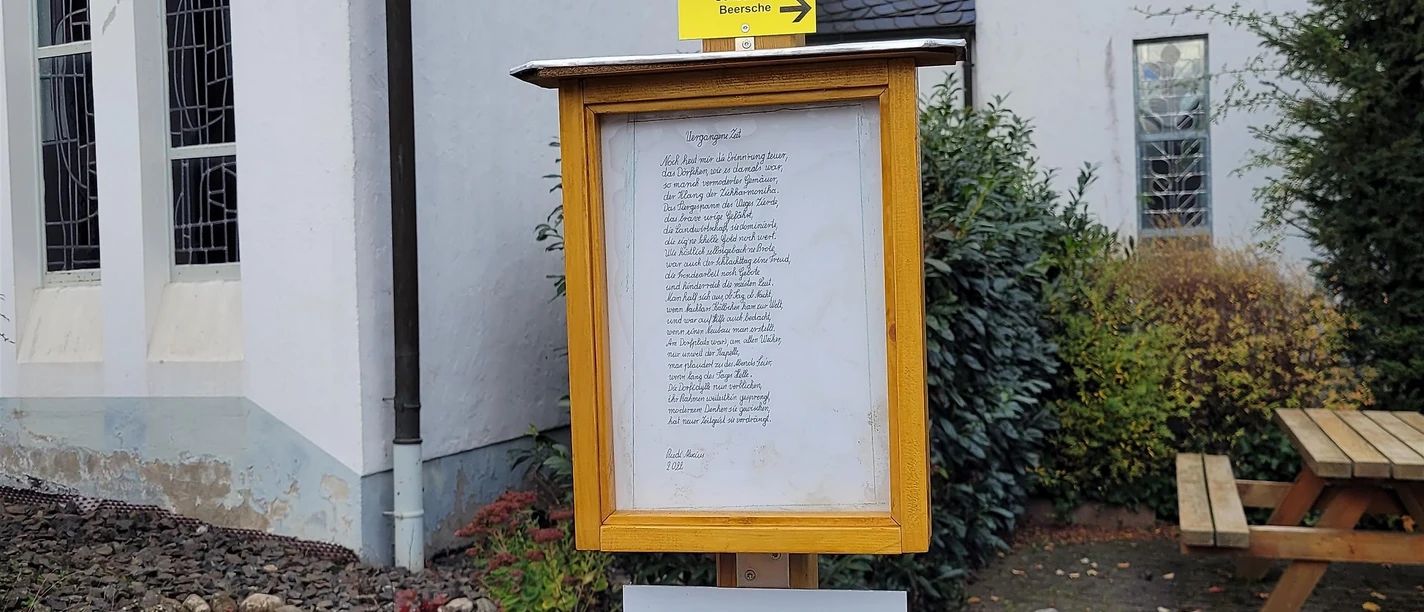 Beersche
Vergangene Zeit
Noch heut mir die Erinn'rung teuer,
das Dörfchen, wie es damals war,
so manch vermodertes Gemäuer,
der Klang der Ziehharmonika.
Das Viergespann des Weges Zierde,
das brave urige Gefährt,
die Landwirtschaft, sie dominierte,
die eig'ne Scholle Gold noch wert.
Wie köstlich selbstgeback'ne Brote,
war auch der Schlachttag eine Freud,
die Frondearbeit noch Gebote
und kinderreich die meisten Leut.
Man half sich aus, ob Tag, ob Nacht,
wenn Nachbars Kälbchen kam zur Welt,
und war auf Hilfe auch bedacht,
wenn einen Neubau man erstellt.
Am Dorfplatz war's, am alten Weiher,
nur unweit der Kapelle,
man plaudert' zu des Abends Feier,
wenn lang des Tages Helle.
Die Dorfidylle nun verblichen,
ihr Rahmen weiterhin gesprengt,
modernem Denken sie gewichen,
hat neuer Zeitgeist sie verdrängt.